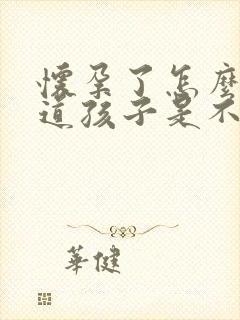 懷孕了怎麼
道孩子是不
華健